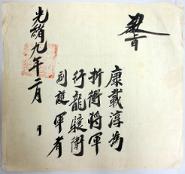 康載淳為
折衝將軍
行龍驤衛
副護軍者
光緒九年二月 日